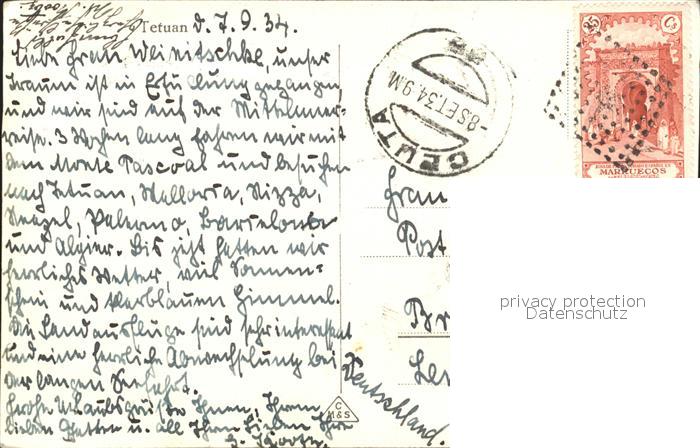 Tetuan d. 7.9.34.
Liebe Frau Weinitschke, unser
Traum ist in Erfüllung gegangen,
und wir sind auf der Mittelmeer-
reise. 3 Wochen lang fahren wir mit
dem Monte Pascoal und besuchen
nach Tetuan, Mallorca, Nizza,
Neapel, Palermo, Barcelona
und Algier. Bis jetzt hatten wir
herrliches Wetter, viel Sonnen-
schein und klarblauen Himmel.
Die Landausflüge sind sehr interessant
und eine herrliche Abwechslung bei
der langen Seefahrt.
Frohe Urlaubsgrüße Ihnen, Ihrem
lieben Gatten u. all Ihren Lieben Ihre
CEUTA
-8 SET 34 9 M
35 Cs
MARRUECOS
Frau
Post
Br
Deutschland.
C
M&S
privacy protection
Datenschutz